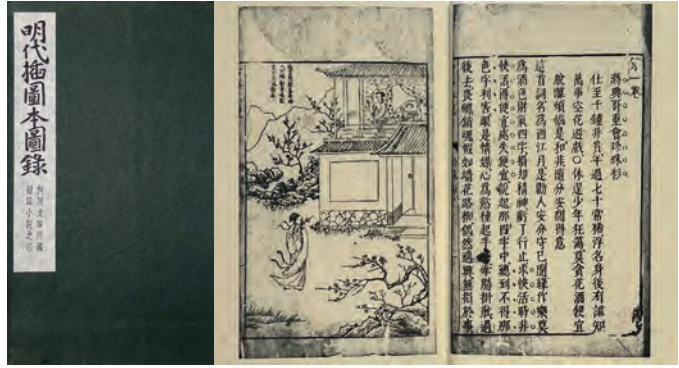 明代插圖本圖錄
內閣文庫所藏
短篇小說之部
第一卷
蔣興哥重會珍珠衫
仕至千鍾非貴年過七十常稀浮名身後有誰知
萬事空花遊戲○休逞少年狂蕩莫貪花酒便宜
脫離煩惱是和非隨分安閒得意
這首詞名為西江月是勸人安分守己隨緣作樂莫
為酒色財氣四字損却精神虧了行止求快活時非
快活得便宜處失便宜說起那四字中總到不得那
色字利害眼是情媒心為慾種起手時牽腸掛肚過
後去喪魄銷魂假如墻花路柳偶然適興無損於事